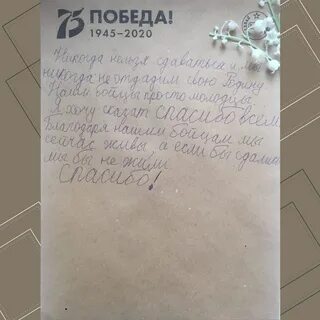 75 ПОБЕДА!
1945–2020
Никогда нельзя сдаваться и мы
никогда не отдадим свою Родину
Наши бойцы просто молодцы.
Я хочу сказат спасибо всем
Благодаря нашим бойцам мы
сейчас живы, а если бы сдались
мы бы не жили.
Спасибо!